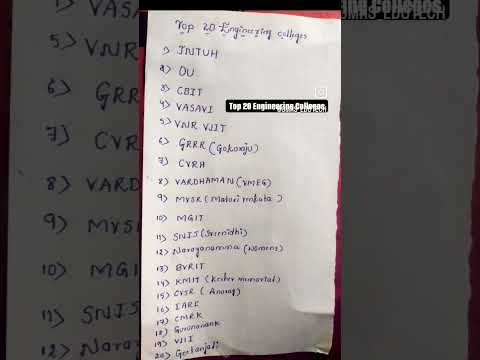 Top 20 Engineering colleges
1) JNTUH
2) OU
3) CBIT
4) VASAVI
Top 20 Engineering Colleges
5) VNR VJIT
6) GRRR (Gokaraju)
7) CVRH
8) VARDHAMAN (VMEG)
9) MVSR (Maturi
10) MGIT
11) SNIS (Sreenidhi)
12) Narayanamma (Womens)
13) BVRIT
14) KMIT (
15) CVSR (Anurag)
16) IARE
17) CMRK
18) Gurunanak
19) VJII
20) Geetanjali
VASAVI
5) VNR
6) GRR
7) CVR
8) VARD
9) MVS
10) MG
11) SNIS
12) Nara
ing Colleges
EDUTECH